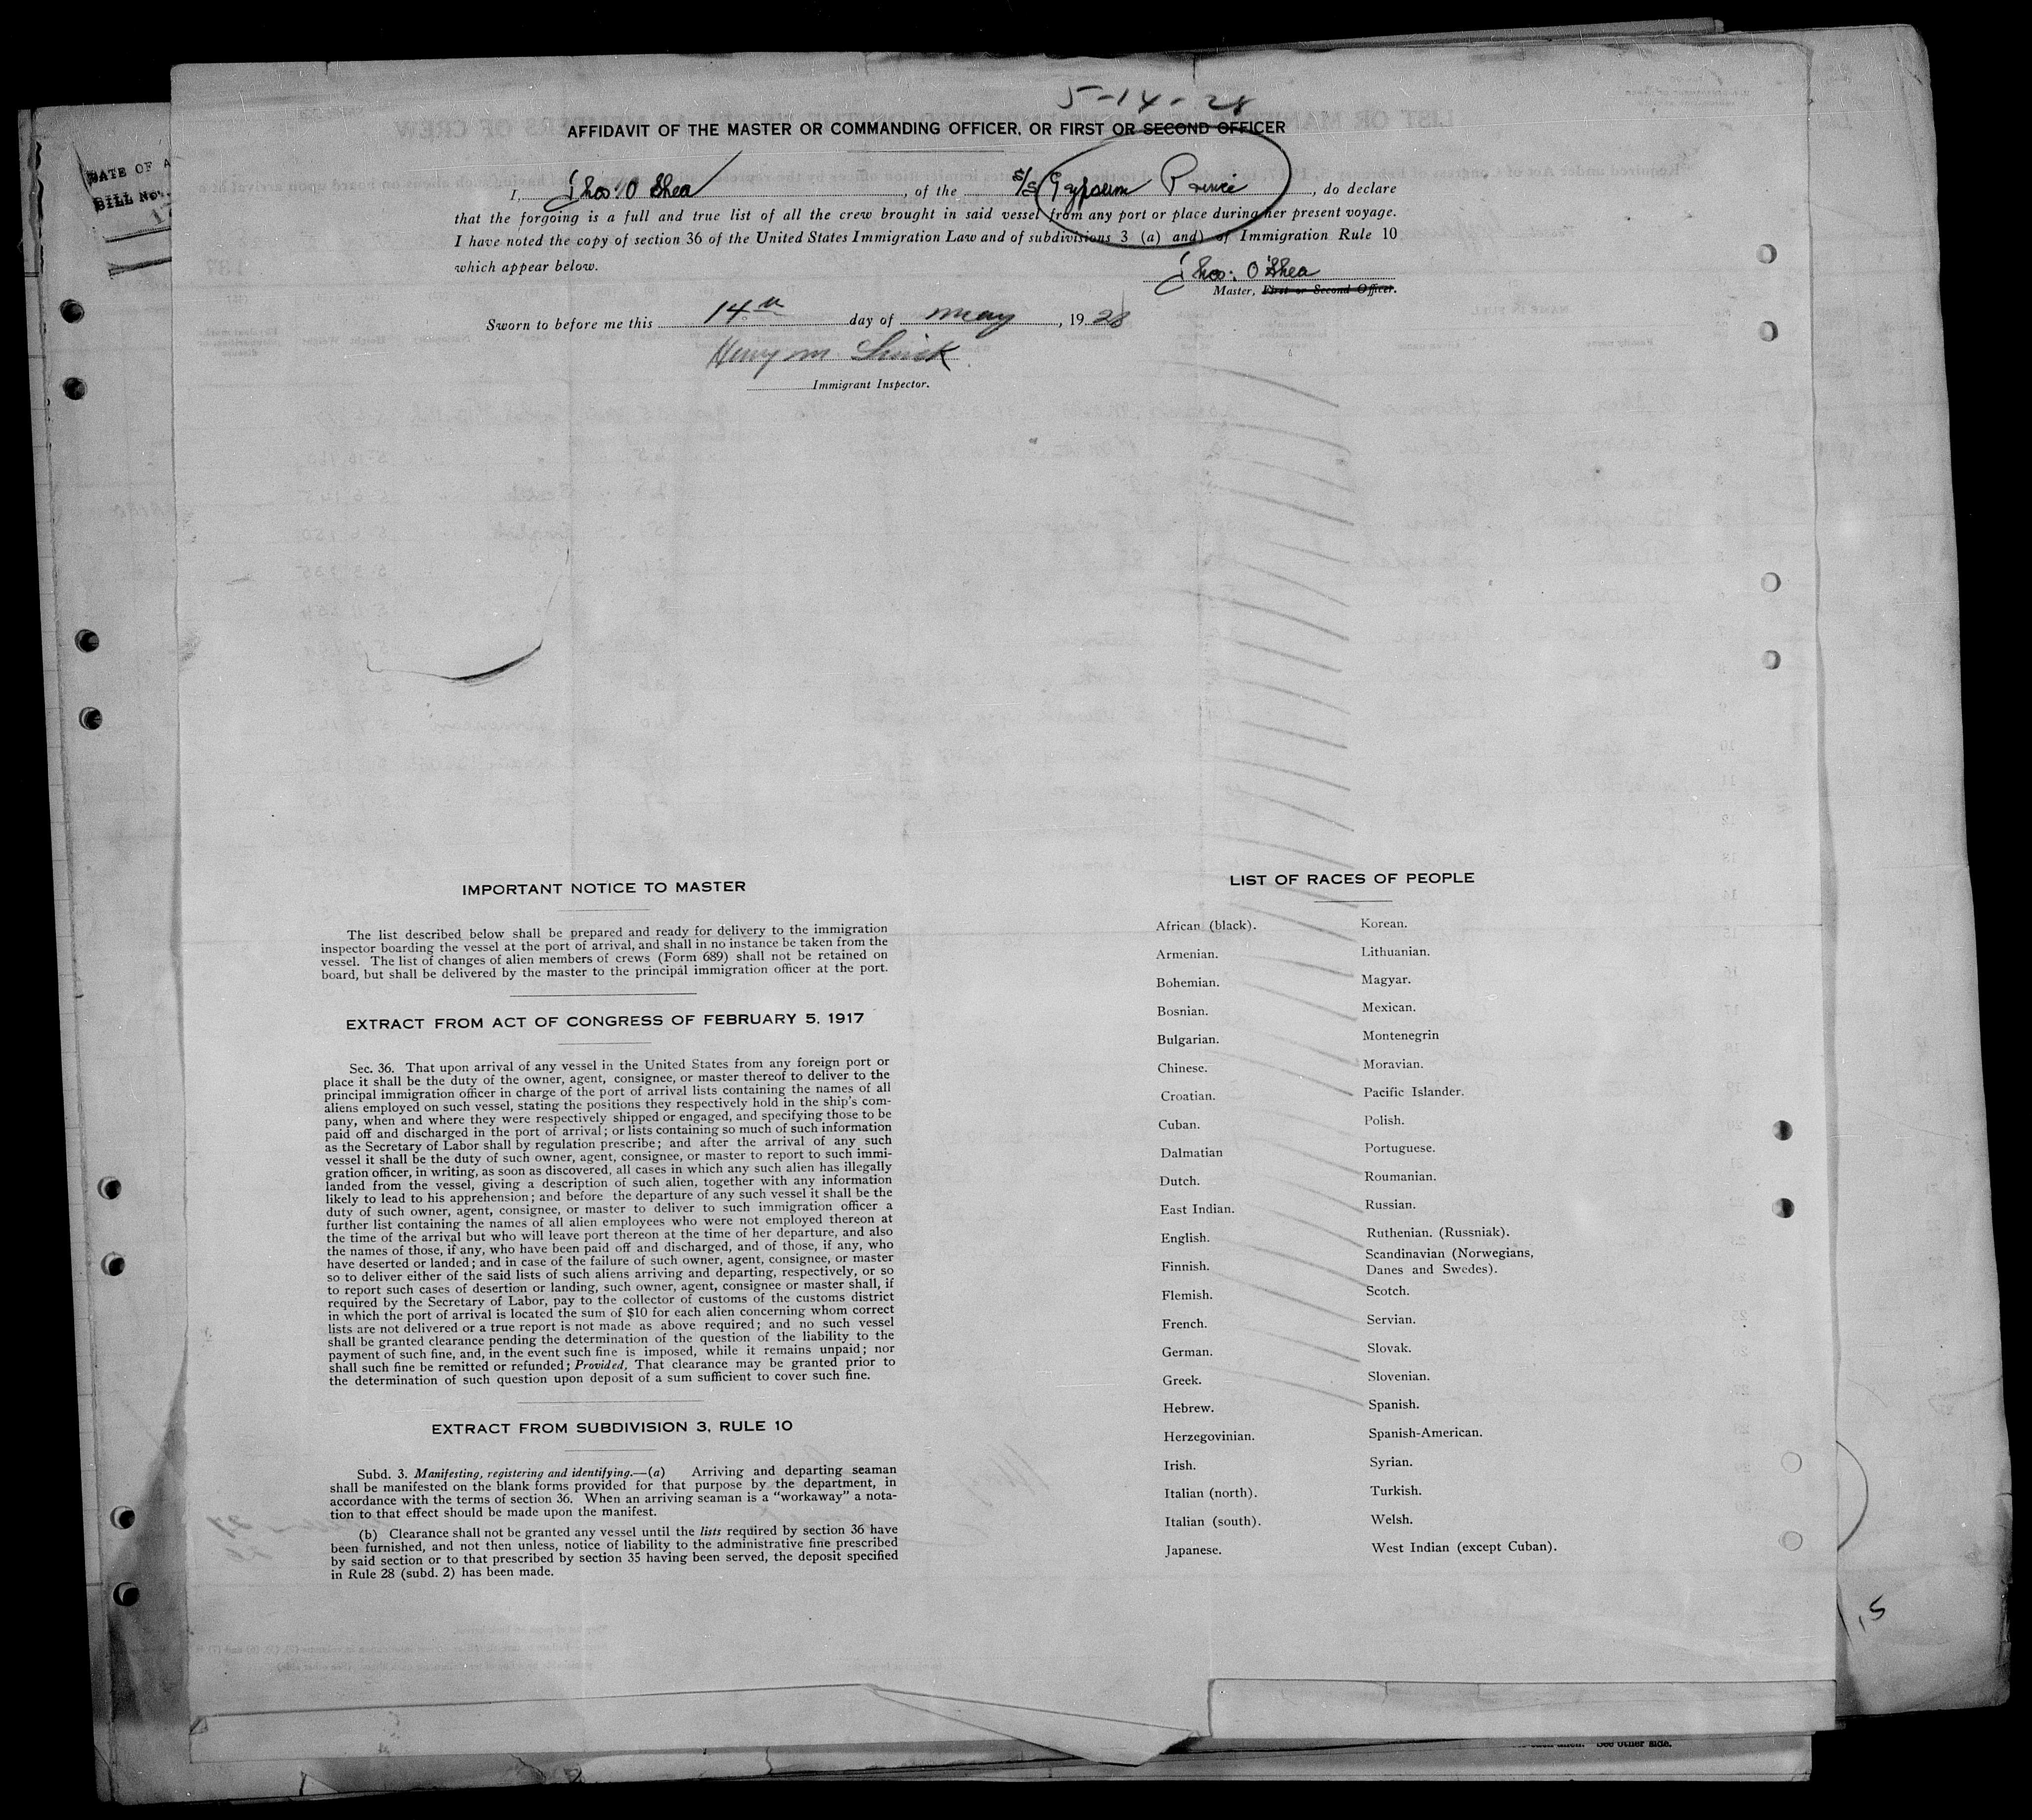 5-14-28
AFFIDAVIT OF THE MASTER OR COMMANDING OFFICER, OR FIRST OR SECOND OFFICER
I, Thos: O'Shea, of the S/S Gypsum Prince, do declare
that the forgoing is a full and true list of all the crew brought in said vessel from any port or place during her present voyage.
I have noted the copy of section 36 of the United States Immigration Law and of subdivisions 3 (a) and) of Immigration Rule 10
which appear below.
Thos: O'Shea
Master, First or Second Officer.
Sworn to before me this 14th day of May, 1928
Henry M.
Immigrant Inspector.
DATE OF A
BILL No.
IMPORTANT NOTICE TO MASTER
The list described below shall be prepared and ready for delivery to the immigration
inspector boarding the vessel at the port of arrival, and shall in no instance be taken from the
vessel. The list of changes of alien members of crews (Form 689) shall not be retained on
board, but shall be delivered by the master to the principal immigration officer at the port.
EXTRACT FROM ACT OF CONGRESS OF FEBRUARY 5, 1917
Sec. 36. That upon arrival of any vessel in the United States from any foreign port or
place it shall be the duty of the owner, agent, consignee, or master thereof to deliver to the
principal immigration officer in charge of the port of arrival lists containing the names of all
aliens employed on such vessel, stating the positions they respectively hold in the ship's com-
pany, when and where they were respectively shipped or engaged, and specifying those to be
paid off and discharged in the port of arrival; or lists containing so much of such information
as the Secretary of Labor shall by regulation prescribe; and after the arrival of any such
vessel it shall be the duty of such owner, agent, consignee, or master to report to such immi-
gration officer, in writing, as soon as discovered, all cases in which any such alien has illegally
landed from the vessel, giving a description of such alien, together with any information
likely to lead to his apprehension; and before the departure of any such vessel it shall be the
duty of such owner, agent, consignee, or master to deliver to such immigration officer a
further list containing the names of all alien employees who were not employed thereon at
the time of the arrival but who will leave port thereon at the time of her departure, and also
the names of those, if any, who have been paid off and discharged, and of those, if any, who
have deserted or landed; and in case of the failure of such owner, agent, consignee, or master
so to deliver either of the said lists of such aliens arriving and departing, respectively, or so
to report such cases of desertion or landing, such owner, agent, consignee or master shall, if
required by the Secretary of Labor, pay to the collector of customs of the customs district
in which the port of arrival is located the sum of $10 for each alien concerning whom correct
lists are not delivered or a true report is not made as above required; and no such vessel
shall be granted clearance pending the determination of the question of the liability to the
payment of such fine, and, in the event such fine is imposed, while it remains unpaid; nor
shall such fine be remitted or refunded; Provided, That clearance may be granted prior to
the determination of such question upon deposit of a sum sufficient to cover such fine.
EXTRACT FROM SUBDIVISION 3, RULE 10
Subd. 3. Manifesting, registering and identifying.—(a) Arriving and departing seaman
shall be manifested on the blank forms provided for that purpose by the department, in
accordance with the terms of section 36. When an arriving seaman is a "workaway" a nota-
tion to that effect should be made upon the manifest.
(b) Clearance shall not be granted any vessel until the lists required by section 36 have
been furnished, and not then unless, notice of liability to the administrative fine prescribed
by said section or to that prescribed by section 35 having been served, the deposit specified
in Rule 28 (subd. 2) has been made.
LIST OF RACES OF PEOPLE
African (black).
Armenian.
Bohemian.
Bosnian.
Bulgarian.
Chinese.
Croatian.
Cuban.
Dalmatian
Dutch.
East Indian.
English.
Finnish.
Flemish.
French.
German.
Greek.
Hebrew.
Herzegovinian.
Irish.
Italian (north).
Italian (south).
Japanese.
Korean.
Lithuanian.
Magyar.
Mexican.
Montenegrin
Moravian.
Pacific Islander.
Polish.
Portuguese.
Roumanian.
Russian.
Ruthenian. (Russniak).
Scandinavian (Norwegians,
Danes and Swedes).
Scotch.
Servian.
Slovak.
Slovenian.
Spanish.
Spanish-American.
Syrian.
Turkish.
Welsh.
West Indian (except Cuban).
See other side.